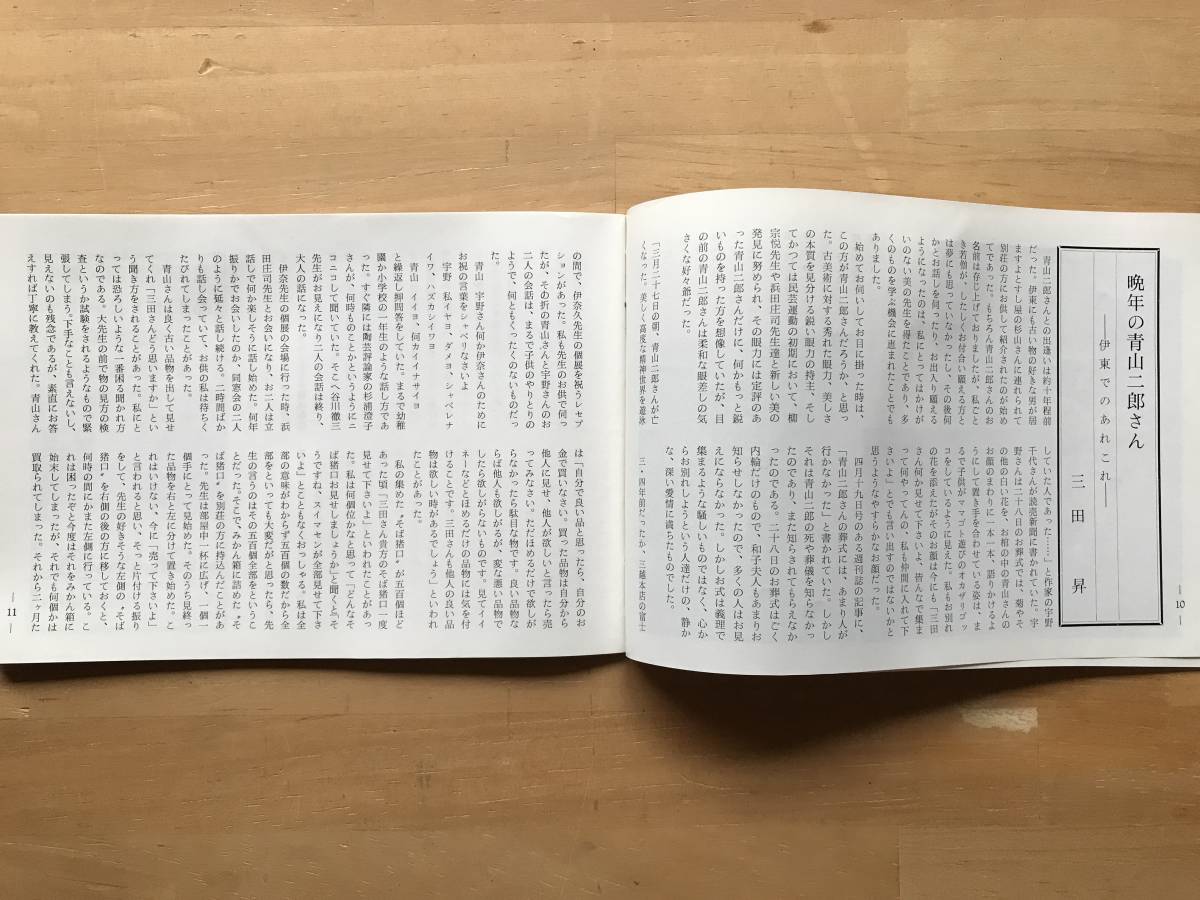 晩年の青山二郎さん
伊東でのあれこれ
三田昇
青山二郎さんとの出逢いは約十年程前
だった。伊東にも古い物の好きな男が居
ますよとすし屋の杉山さんに連れられて
別荘の方にお供して紹介されたのが始め
てであった。もちろん青山二郎さんのお
名前は存じ上げておりましたが、私ごと
き若僧が、したしくお付合い願える方と
は夢にも思っていなかった。しかし、その後何
かとお話しを伺ったり、お出入り願える
ようになったのは、私にとってはかけが
いのない美の先生を得たことであり、多
くのものを学ぶ機会に恵まれたことでも
ありました。
始めてお伺いしてお目に掛った時は、
この方が青山二郎さんだろうか、と思っ
た。古美術に対する秀れた眼力、美しさ
の本質を見分ける鋭い眼力の持主、そし
てかつては民芸運動の初期において、柳
宗悦先生や浜田庄司先生達と新しい美の
発見に努められ、その眼力には定評のあ
った青山二郎さんだけに、何かもっと鋭
いものを持った方を想像していたが、目
の前の青山二郎さんは柔和な眼差しの気
さくな好々爺だった。
「三月二十七日の朝、青山二郎さんが亡
くなった。美しく高度な精神世界を遊泳
していた人であった……」と作家の宇野
千代さんが読売新聞に書かれていた。宇
野さんは二十八日のお葬式では、菊やそ
の他の白い花を、お棺の中の青山さんの
お顔のまわりに一本一本、語りかけるよ
うにして置き手を合わせている姿は、ま
るで子供がママゴト遊びのオカザリゴッ
コをしているように見えた。私もお別れ
の花を添えたがそのお顔は今にも「三田
さん何か見せて下さいよ、皆んなで集ま
って何やってんの、私も仲間に入れて下
さいよ」とでも言い出すのではないかと
思うようなやすらかなお顔だった。
四月十九日号のある週刊誌の記事に、
「青山二郎さんの葬式には、あまり人が
行かなかった」と書かれていた。しかし
それは青山二郎の死や葬儀を知らなかっ
たのであり、また知らされてもらえなか
ったのである。二十八日のお葬式はごく
内輪だけのもので、和子夫人もあまりお
知らせしなかったので、多くの人はお見
えにならなかった。しかしお式は義理で
集まるような騒しいものではなく、心か
らお別れしようという人達だけの、静か
な、深い愛情に満ちたものだった。
三・四年前だったか、三越本店の富士
― 10 ―
の間で、伊奈久先生の個展を祝うレセプ
ションがあった。私も先生のお供で伺っ
たが、その折の青山さんと宇野さんのお
二人の会話は、まるで子供のやりとりの
ようで、何ともくったくのないものだっ
た。
青山　宇野さん何か伊奈さんのために
お祝の言葉をシャベリなさいよ
宇野　私イヤヨ、ダメヨ、シャベレナ
イワ、ハズカシイワヨ
青山　イイヨ、何カイイナサイヨ
と繰返し押問答をしていた。まるで幼稚
園か小学校の一年生のような話し方であ
った。すぐ隣には陶芸評論家の杉浦澄子
さんが、何時ものことかというようにニ
コニコして聞いていた。そこへ谷川徹三
先生がお見えになり二人の会話は終り、
大人の話になった。
伊奈先生の個展の会場に行った時、浜
田庄司先生とお会いになり、お二人は立
話しで何か楽しそうに話し始めた。何年
振りかでお会いしたのか、同窓会の二人
のように延々と話し続ける。二時間ばか
りも話し合っていて、お供の私は待ちく
たびれてしまったことがあった。
青山さんは良く古い品物を出して見せ
てくれ「三田さんどう思いますか」とい
う聞き方をされることがあった。私にと
っては恐ろしいような一番困る聞かれ方
なのである。大先生の前で物の見方の検
査というか試験をされるようなもので緊
張してしまう。下手なことも言えないし、
見えないのも残念であるが、素直に答
えすれば丁寧に教えてくれた。青山さん
は「自分で良い品と思ったら、自分のお
金で買いなさい。買った品物は自分から
他人に見せ、他人が欲しいと言ったら売
ってみなさい。ただほめるだけで欲しが
らなかったら駄目な物です。良い品物な
らば他人も欲しがるが、変な悪い品物で
したら欲しがらないものです。見てイイ
ネーなどとほめるだけの品物には気を付
けることです。三田さんも他人の良い品
物は欲しい時があるでしょう」といわれ
たことがあった。
私の集めた〝そば猪口〟が五百個ほど
あった頃「三田さん貴方のそば猪口一度
見せて下さいよ」といわれたことがあっ
た。私は何個位かなと思って「どんなそ
ば猪口お見せしましょうか」と聞くと「そ
うですね、スイマセンが全部見せて下さ
いよ」とこともなくおっしゃる。私は全
部の意味がわからず五百個の数だから全
部をといっても大変だがと思ったら、先
生の言うのはその五百個全部をというこ
とだった。そこで、みかん箱に詰めた〝そ
ば猪口〟を別荘の方に持込んだことがあ
った。先生は部屋中一杯に広げ、一個一
個手にとって見始めた。そのうち見終っ
た品物を右と左に分けて置き始めた。こ
れはいけない、今に「売って下さいよ」
と言われると思い、そっと片付ける振り
をして、先生の好きそうな左側の〝そば
猪口〟を右側の後の方に移しておくと、
何時の間にかまた左側に行っている。こ
れは困ったぞと今度はそれをみかん箱に
始末してしまったが、それでも何個かは
買取られてしまった。それから二ヶ月た
― 11 ―